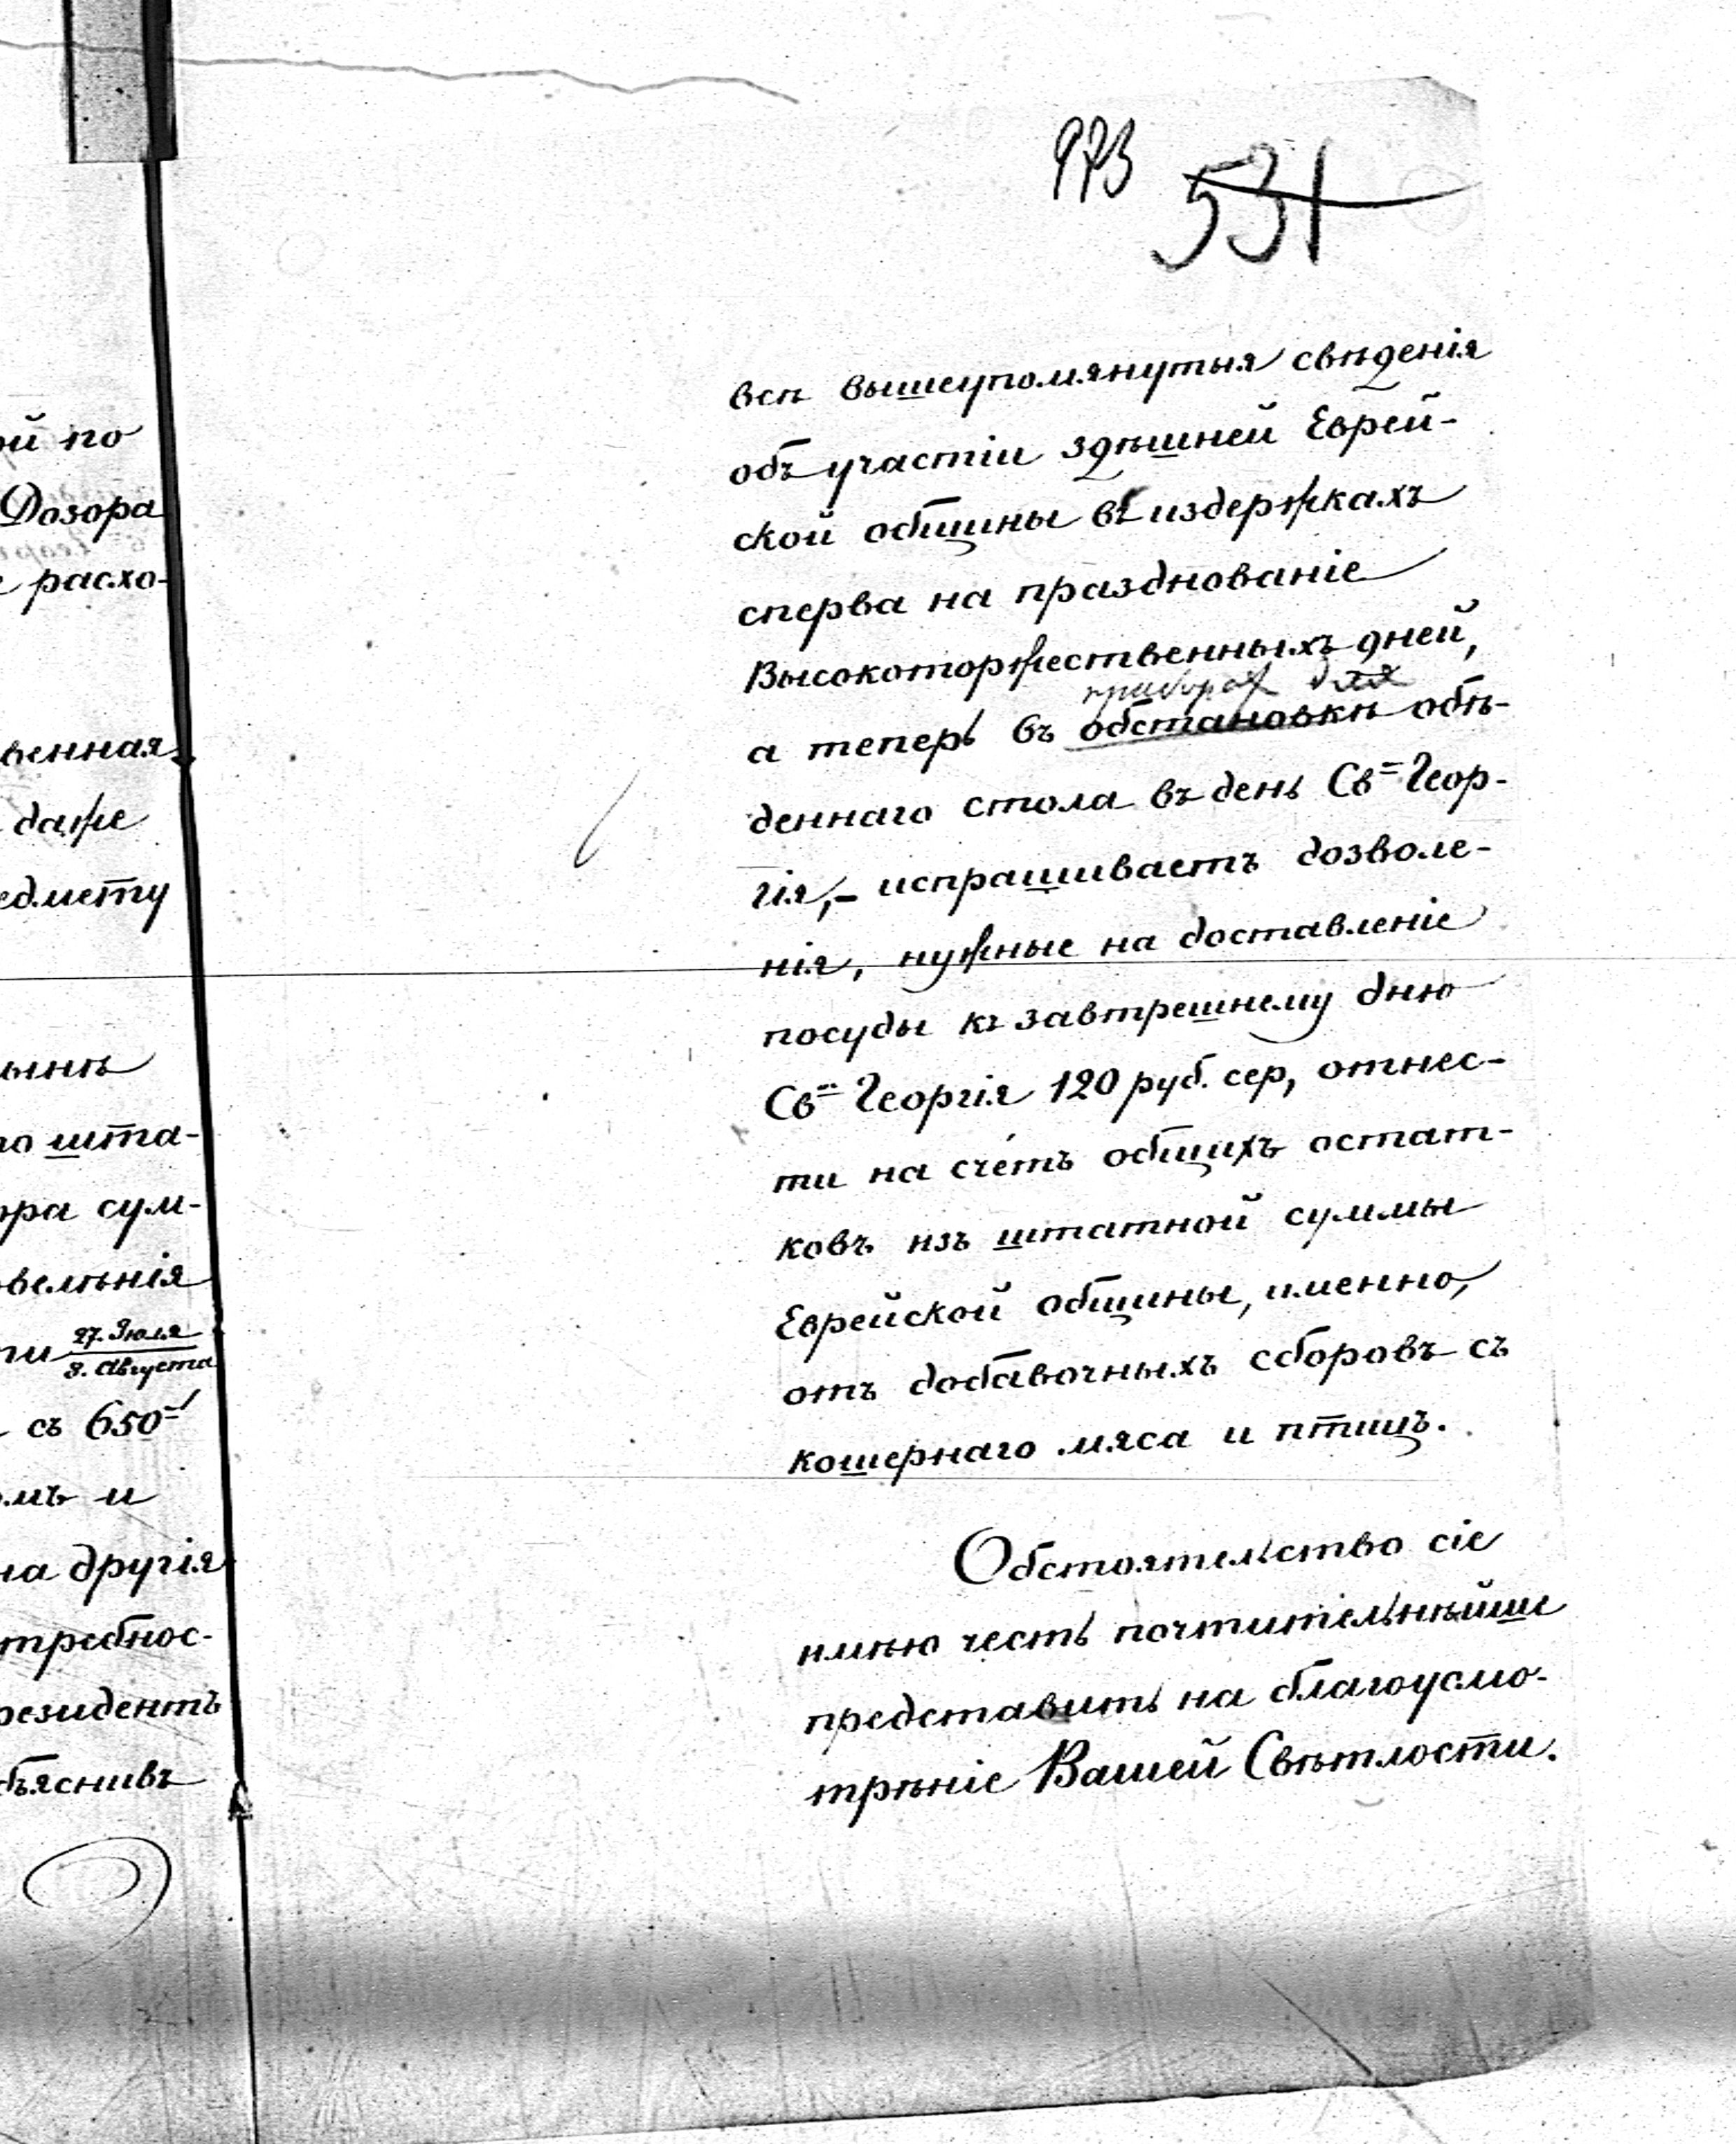 ой по
Дозора
расхо-
венная
даже
едмету
ынѣ
по шта-
ора сум-
овелѣнія
ти 27. Іюля
8. Августа
съ 650
омъ и
на другія
требнос-
резидентъ
бъяснивъ
973 531
всѣ вышеупомянутыя свѣденія
объ участіи здѣшней Еврей-
ской общины въ издержкахъ
сперва на празднованіе
Высокоторжественныхъ дней,
приборах для
а теперь въ обстановкѣ обѣ-
деннаго стола въ день Св= Геор-
гія,- испрашиваетъ дозволе-
нія, нужные на доставленіе
посуды къ завтрешнему дню
Св= Георгія 120 руб. сер, отнес-
ти на счётъ общихъ остат-
ковъ изъ штатной суммы
Еврейской общины, именно,
отъ добавочныхъ сборовъ съ
кошернаго мяса и птицъ.
Обстоятельство сіе
имѣю честь почтительнѣйше
представить на благоусмо-
трѣніе Вашей Свѣтлости.